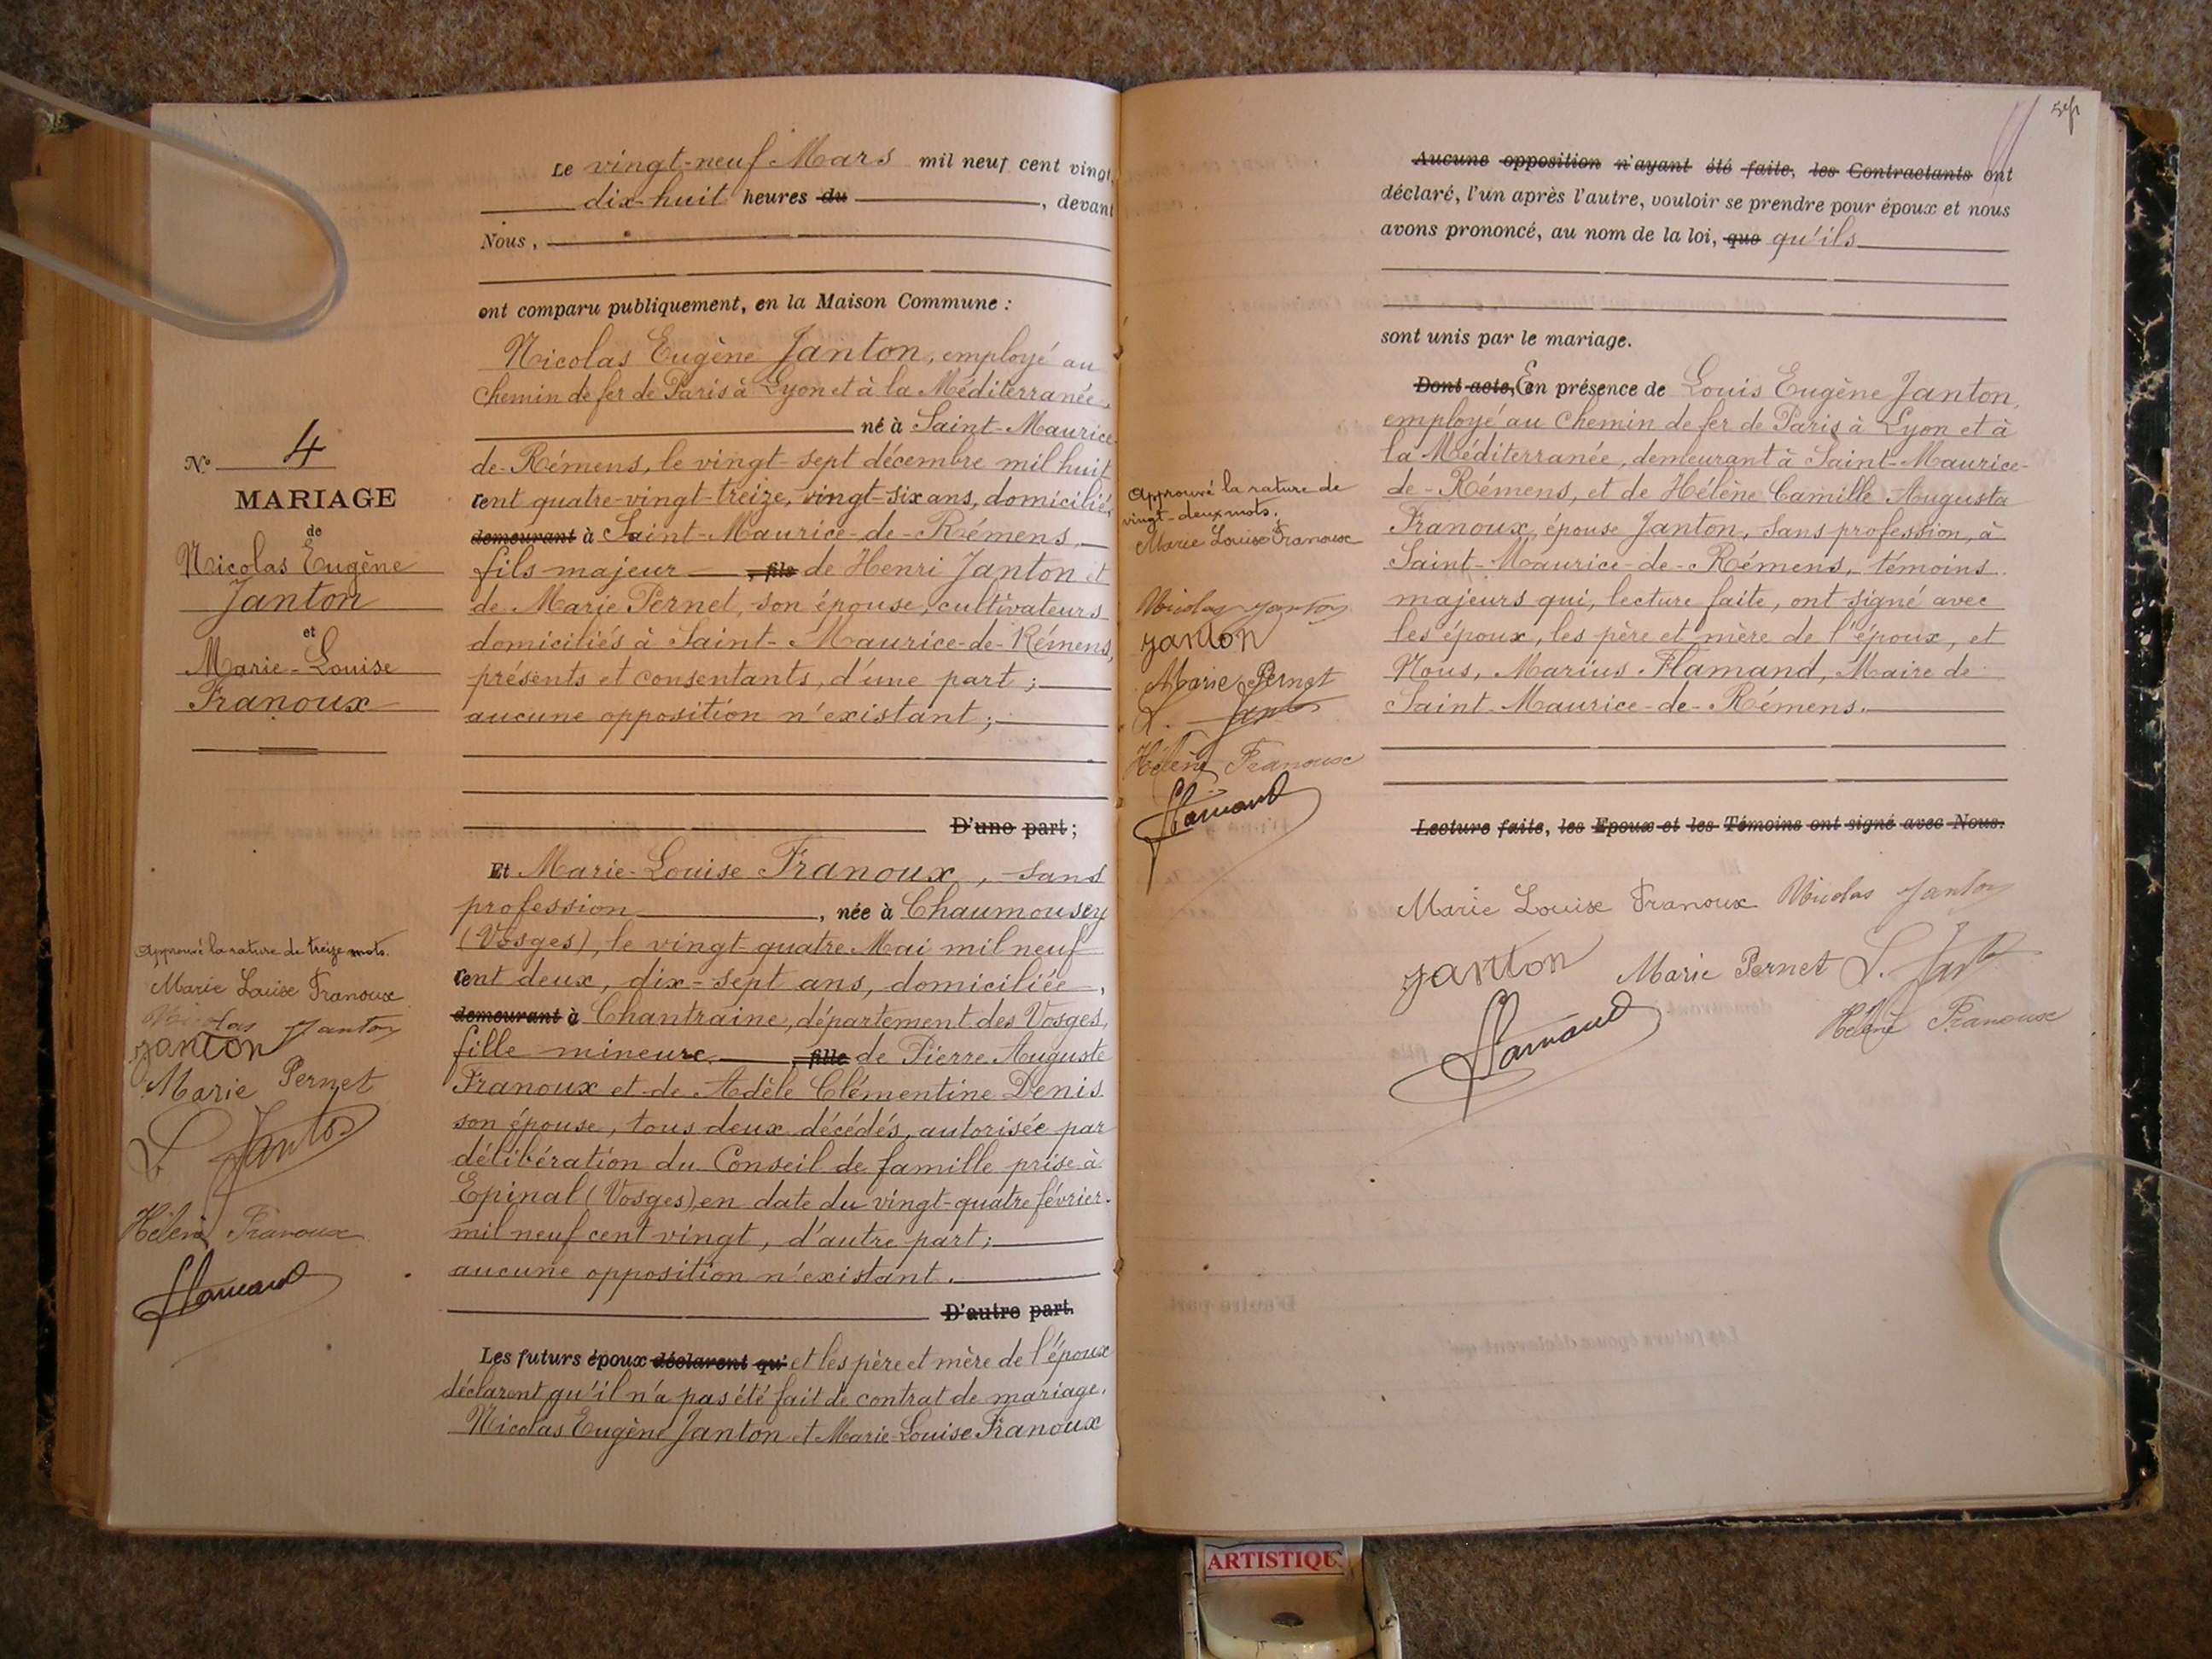 Le vingt-neuf Mars mil neuf cent vingt,
dix-huit heures du, devant
Nous,
ont comparu publiquement, en la Maison Commune :
Nicolas Eugène Janton, employé au
Chemin de fer de Paris à Lyon et à la Méditerranée,
né à Saint-Maurice-
de-Rémens, le vingt-sept décembre mil huit
cent quatre-vingt-treize, vingt-six ans, domicilié,
demeurant à Saint-Maurice-de-Rémens,
fils majeur, fils de Henri Janton et
de Marie Pernet, son épouse, cultivateurs
domiciliés à Saint-Maurice-de-Rémens,
présents et consentants, d'une part ;
aucune opposition n'existant ;
D'une part ;
N° 4
MARIAGE
de
Nicolas Eugène
Janton
et
Marie-Louise
Franoux
Et Marie-Louise Franoux, sans
profession, née à Chaumousey
(Vosges), le vingt-quatre Mai mil neuf
cent deux, dix-sept ans, domiciliée,
demeurant à Chantraine, département des Vosges,
fille mineure, fille de Pierre Auguste
Franoux et de Adèle Clémentine Denis
son épouse, tous deux décédés, autorisée par
délibération du Conseil de famille prise à
Epinal (Vosges) en date du vingt-quatre février
mil neuf cent vingt, d'autre part ;
aucune opposition n'existant.
D'autre part.
Les futurs époux déclarent qu' et les père et mère de l'époux
déclarent qu'il n'a pas été fait de contrat de mariage.
Nicolas Eugène Janton et Marie-Louise Franoux
Approuvé la rature de treize mots.
Marie Louise Franoux
Nicolas Janton
Janton
Marie Pernet
L. Janton
Hélène Franoux
Flamand
Aucune opposition n'ayant été faite, les Contractants ont
déclaré, l'un après l'autre, vouloir se prendre pour époux et nous
avons prononcé, au nom de la loi, que qu'ils
sont unis par le mariage.
Dont acte, En présence de Louis Eugène Janton,
employé au Chemin de fer de Paris à Lyon et à
la Méditerranée, demeurant à Saint-Maurice-
de-Rémens, et de Hélène Camille Augusta
Franoux, épouse Janton, sans profession, à
Saint-Maurice-de-Rémens, témoins
majeurs qui, lecture faite, ont signé avec
les époux, les père et mère de l'époux, et
Nous, Marius Flamand, Maire de
Saint-Maurice-de-Rémens.
Lecture faite, les Epoux et les Témoins ont signé avec Nous.
Approuvé la rature de
vingt-deux mots.
Marie Louise Franoux
Nicolas Janton
Janton
Marie Pernet
L. Janton
Hélène Franoux
Flamand
Marie Louise Franoux Nicolas Janton
Janton Marie Pernet L. Janton
Flamand Hélène Franoux
ARTISTIQU